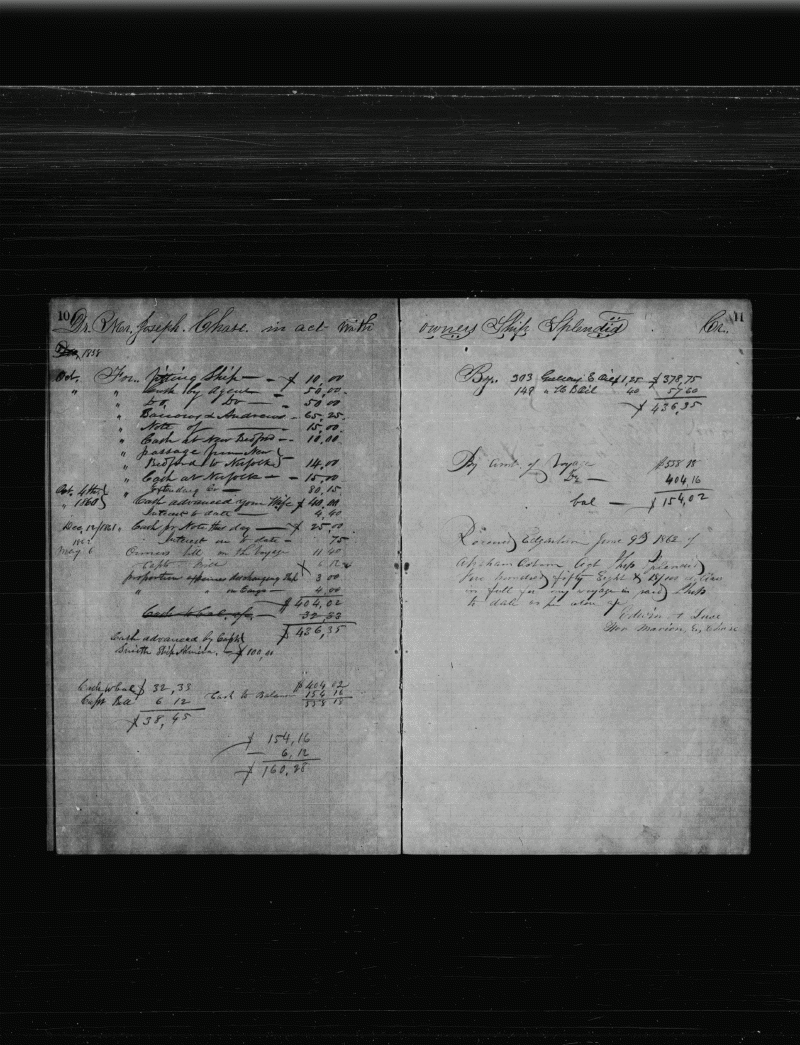 10
Dr. Mer. Joseph. Chase. in act with
1858
Oct. For fitting Ship — " $ 10,00
" " Cash by Agent — " 50,00
" " Do, " Do — " 50,00
" & Andrews — 65,25
" Note of — 15,00
" Cash at New Bedford — 10,00
" passage from New
Bedford to Norfolk 14,00
" Cash at Norfolk — 15,00
Oct. 4th 80,15
" 1860 Cash advanced your Wife $ 40,00
Interest to date — 4,40
Dec, 12/1861 " Cash for Note this day — $ 25,00
1862 Interest on to date — 75
May 6 Owners bill on the Voyage 11 40
Capts Bill X 6 12
proportion expenses discharging Ship 3 00
" " on Cargo — 4,00
$ 404,02
Cash to bal of 32,33
$ 436,35
Cash advanced by Capt
Smith Ship — $ 100,00
Cash to bal $ 32,33
Capt Bill 6 12
$ 38,45
Cash to Balance
$ 404 02
154 16
558 18
$ 154,16
6,12
$ 160,28
owners Ship Splendid Cr.
11
By. 303 Gallons S Oil 1,25 $ 378,75
149 " W Oil 40 57 60
$ 436,35
By Amt. of Voyage $ 558 18
Dr — 404,16
bal — $ 154,02
Received Edgartown June 9th 1862 of
Abraham Osborn Agt Ship Splendid
Five hundred fifty Eight & 18/100 dollars
in full for my voyage in said Ship
to date as for above